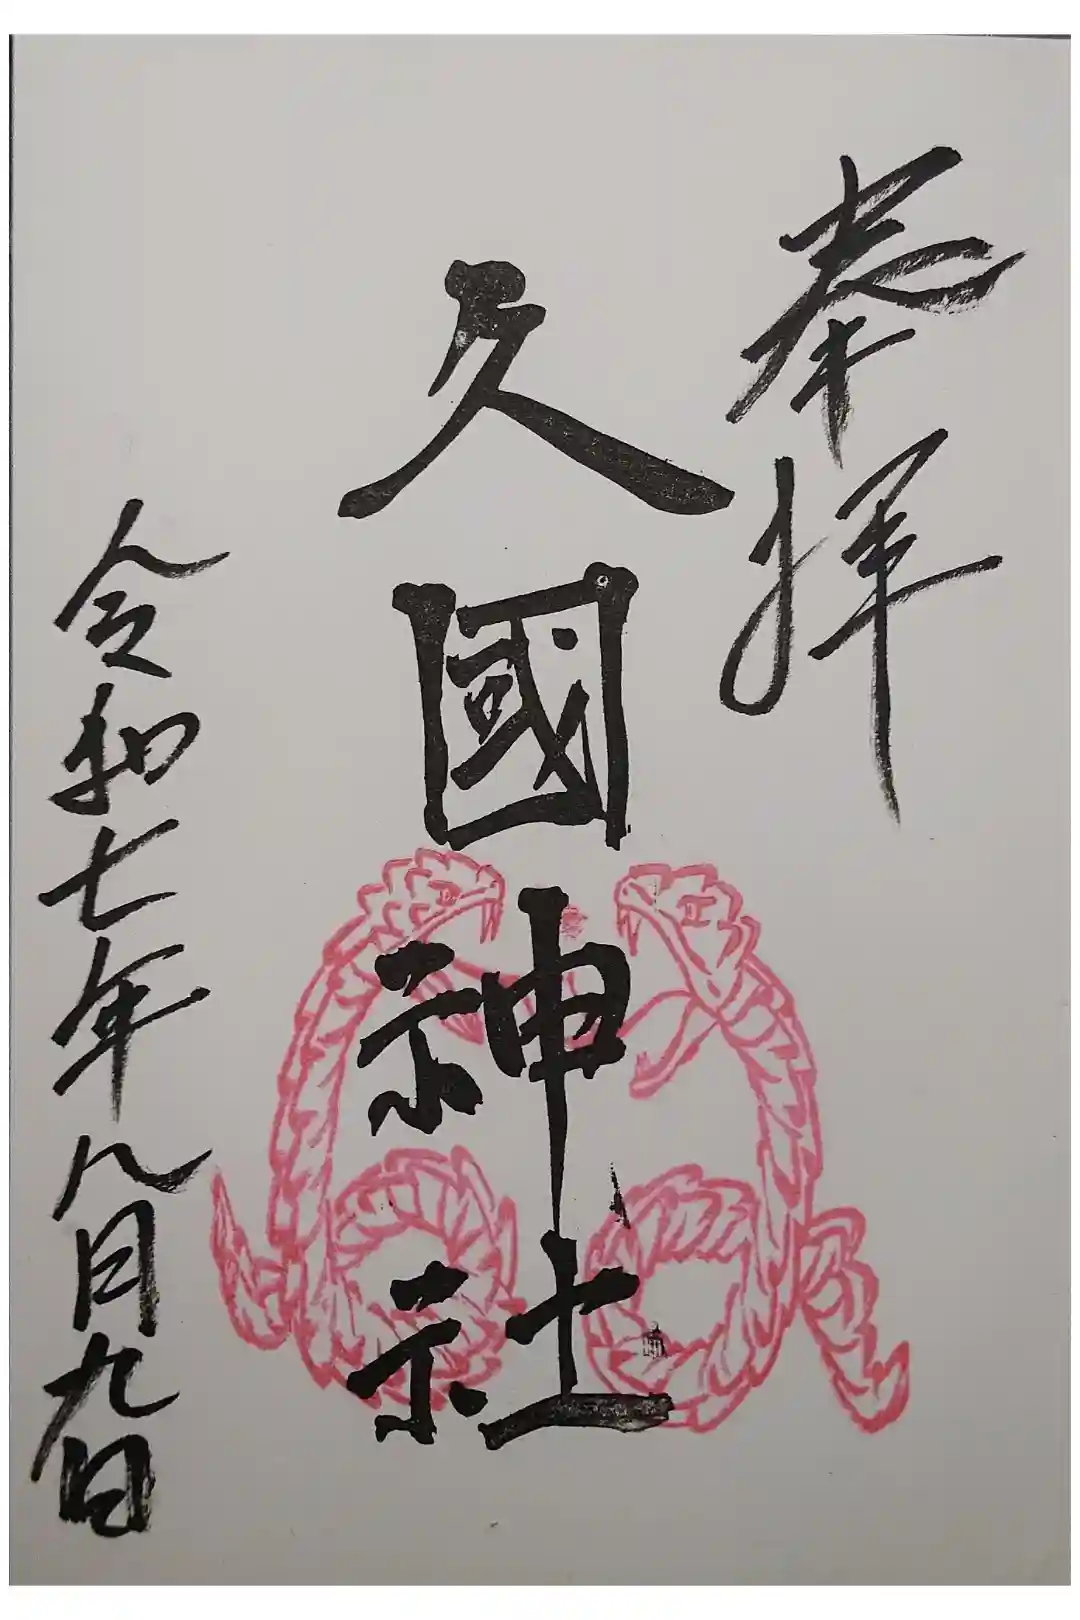 奉拝
久國神社
令和七年八月九日